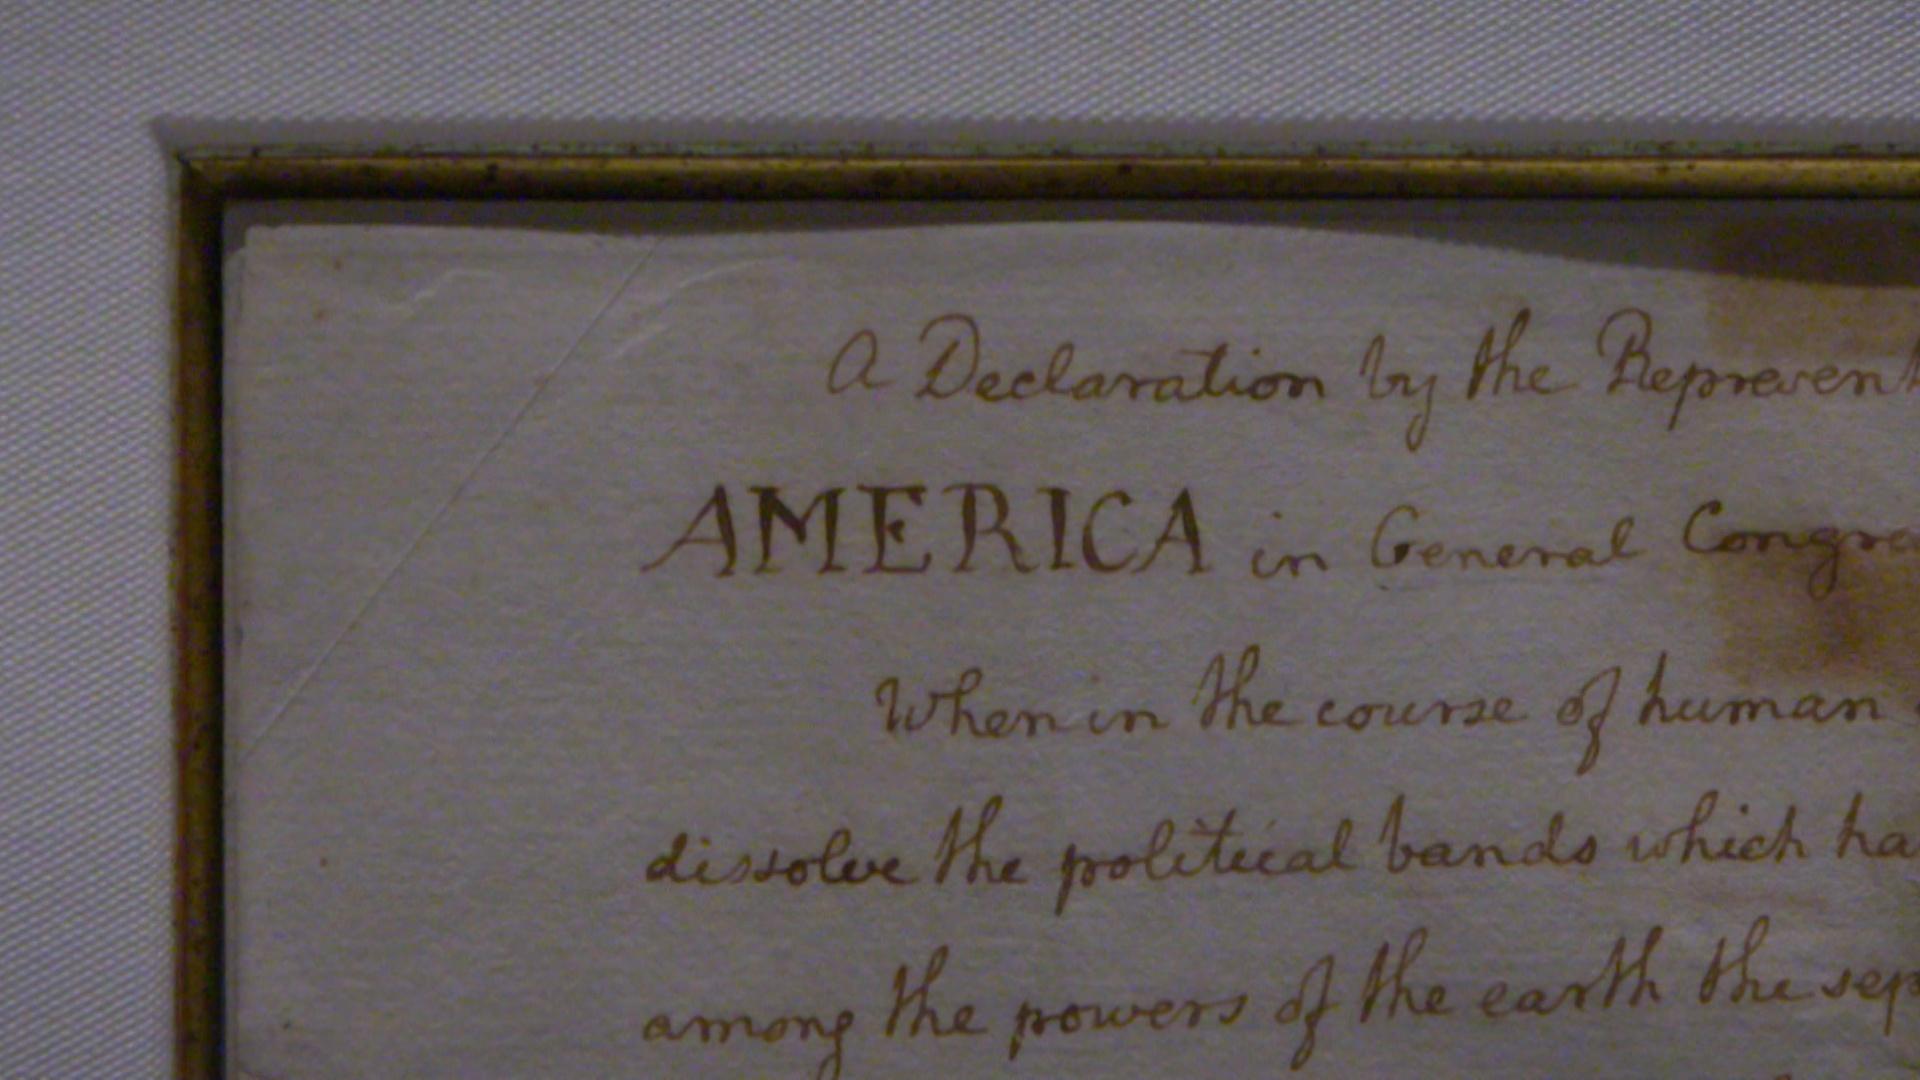 A Declaration by the Represent
AMERICA in General Congre
When in the course of human
dissolve the political bands which ha
among the powers of the earth the sep